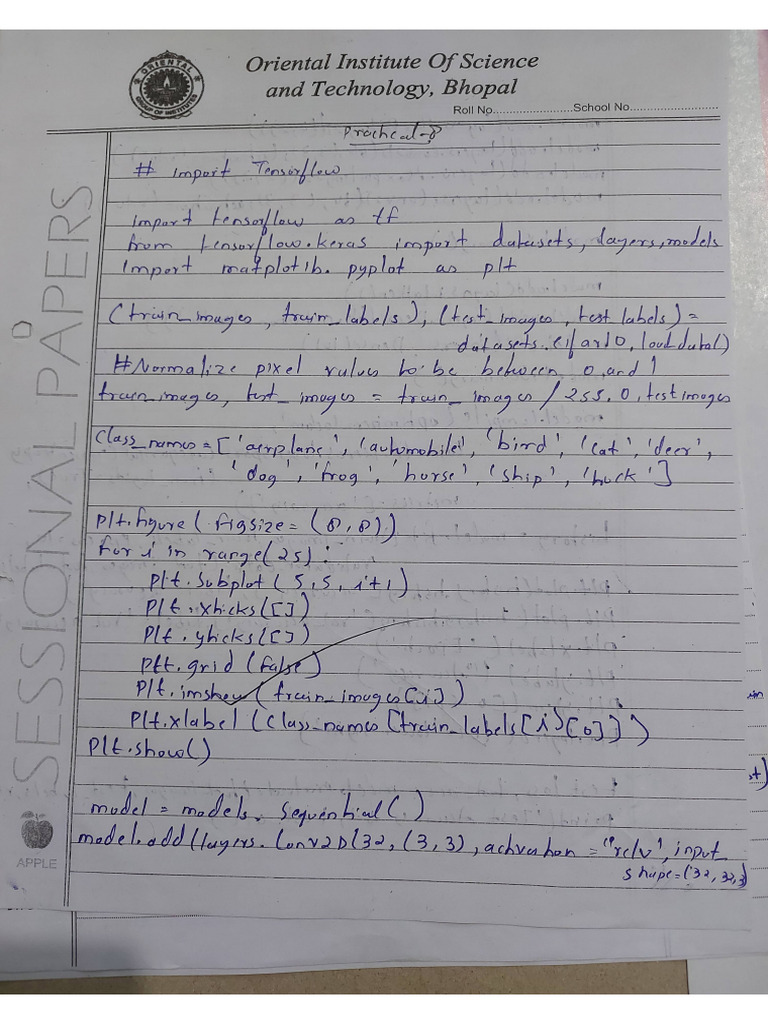 ORIENTAL
GROUP OF INSTITUTES
Oriental Institute Of Science
and Technology, Bhopal
Roll No.........................School No...........................
Practical-8
# import Tensorflow
import tensorflow as tf
from tensorflow.keras import datasets, layers, models
import matplotlib. pyplot as plt
(train_images, train_labels), (test_images, test_labels) =
datasets.cifar10, load data()
#Normalize pixel values to be between 0, and 1
train_images, test_images = train_images / 255.0, test images
Class_names = ['airplane', 'automobile', 'bird', 'cat', 'deer',
'dog', 'frog', 'horse', 'ship', 'truck']
plt.figure (figsize = (8,8))
for i in range(25):
plt.subplot (5,5, i+1)
plt.xticks([])
plt.yticks([])
plt.grid (false)
plt.imshow (train_images[i])
plt.xlabel (class_names [train_labels[i][0]])
plt.show()
model = models. Sequential()
model.add (layers. Conv2D(32, (3,3), activation = "relu", input
shape=(32,32,3)
SESSIONAL PAPERS
APPLE